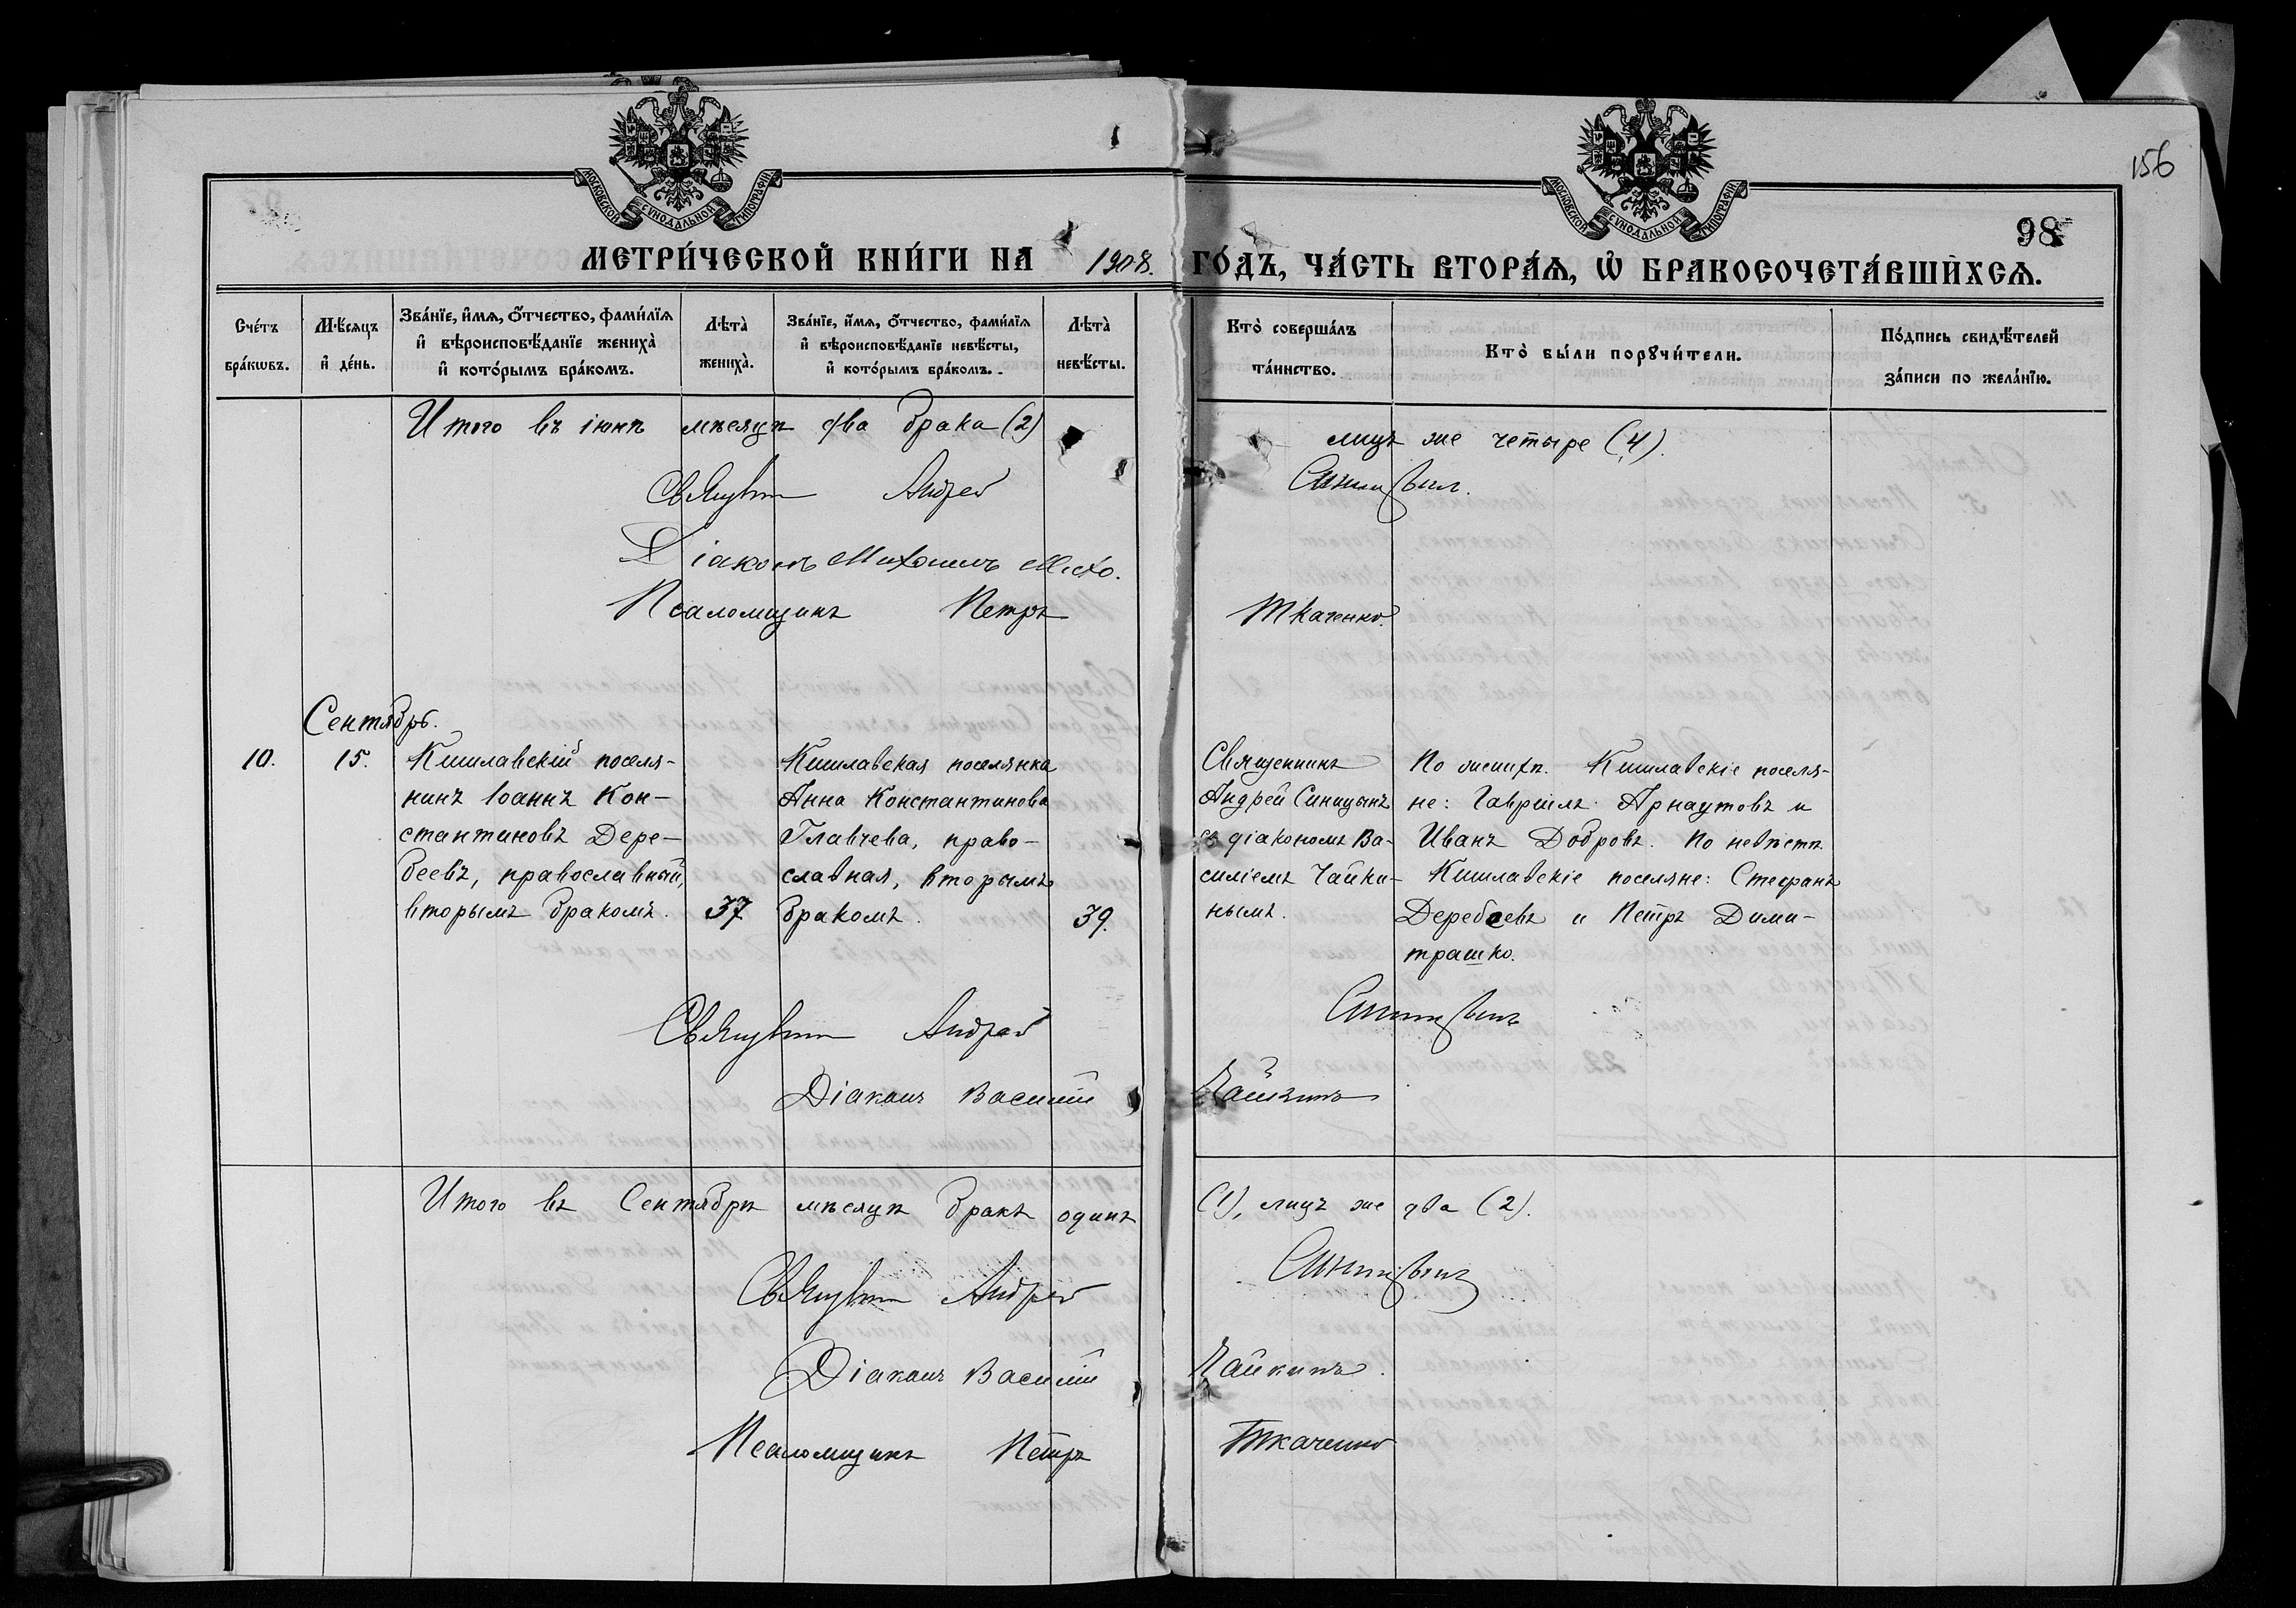 МОСКОВСКОЙ СѴНОДАЛЬНОЙ ТИПОГРАФІИ
МОСКОВСКОЙ СѴНОДАЛЬНОЙ ТИПОГРАФІИ
156
98
МЕТРИ́ЧЕСКОЙ КНИ́ГИ НА 1908. ГО́ДЪ, ЧА́СТЬ ВТОРА́Ѧ, Ѡ БРАКОСОЧЕТА́ВШИХСѦ.
Сче́тъ
бра́кѡвъ.
Мѣ́сяцъ
и҆ де́нь.
Зва́нїе, и҆́мѧ, ѻ҆́тчество, фами́лїѧ
и҆ вѣроисповѣ́данїе жениха̀
и҆ кото́рымъ бра́комъ.
Лѣ́та̀
жениха̀.
Зва́нїе, и҆́мѧ, ѻ҆́тчество, фами́лїѧ
и҆ вѣроисповѣ́данїе невѣ́сты,
и҆ кото́рымъ бра́комъ.
Лѣ́та̀
невѣ́сты.
Кто̀ соверша́лъ
та́инство.
Кто̀ бы́ли порꙋчи́тели.
По́дпись свидѣ́телей
за́писи по жела́нїю.
Итого въ іюнѣ мѣсяцѣ два брака (2) лицъ же четыре (4).
Священникъ Андрей Синицынъ.
Діаконъ Михаилъ
Псаломщикъ Петръ Ткаченко.
Сентябрь.
10. 15.
Кишлавскій поселя-
нинъ Іоаннъ Кон-
стантиновъ Дере-
беевъ, православный,
вторымъ бракомъ.
37
Кишлавская поселянка
Анна Константинова
Главчева, право-
славная, вторымъ
бракомъ.
39.
Священникъ
Андрей Синицынъ
съ діакономъ Ва-
силіемъ Чайки-
нымъ.
По женихѣ. Кишлавскіе поселя-
не: Гавріилъ Арнаутовъ и
Иванъ Добровъ. По невѣстѣ
Кишлавскіе поселяне: Стефанъ
Деребеевъ и Петръ Дими-
трашко.
Священникъ Андрей Синицынъ
Діаконъ Василій Чайкинъ
Итого въ Сентябрѣ мѣсяцѣ бракъ одинъ (1), лицъ же два (2).
Священникъ Андрей Синицынъ
Діаконъ Василій Чайкинъ.
Псаломщикъ Петръ Ткаченко